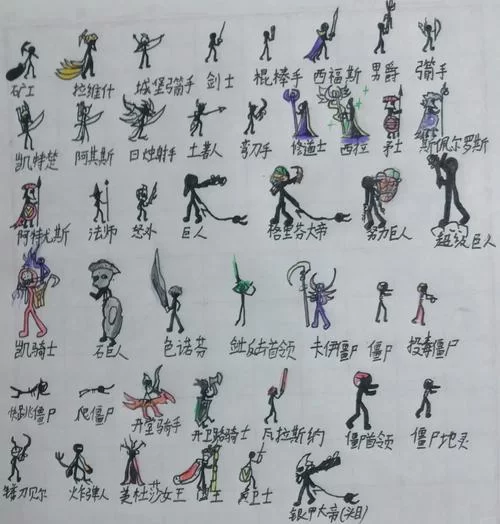 矿工 拉维什 城堡弓箭手 剑士 棍棒手 西福斯 男爵 弓箭手
凯特楚 阿其斯 日烛射手 土著人 弯刀手 修道士 西位 矛士 斯佩尔罗斯
阿特尤斯 法师 怒水 巨人 格里芬大帝 努力巨人 超级巨人
凯骑士 石巨人 色诺芬 首领 卡伊僵尸 僵尸 投毒僵尸
僵尸 爬僵尸 开堂骑手 开卫路骑士 瓦拉斯纳 僵尸首领 僵尸地灵
镰刀贝尔 炸弹人 美杜莎女王 国王 卫士 银甲大帝(头目)